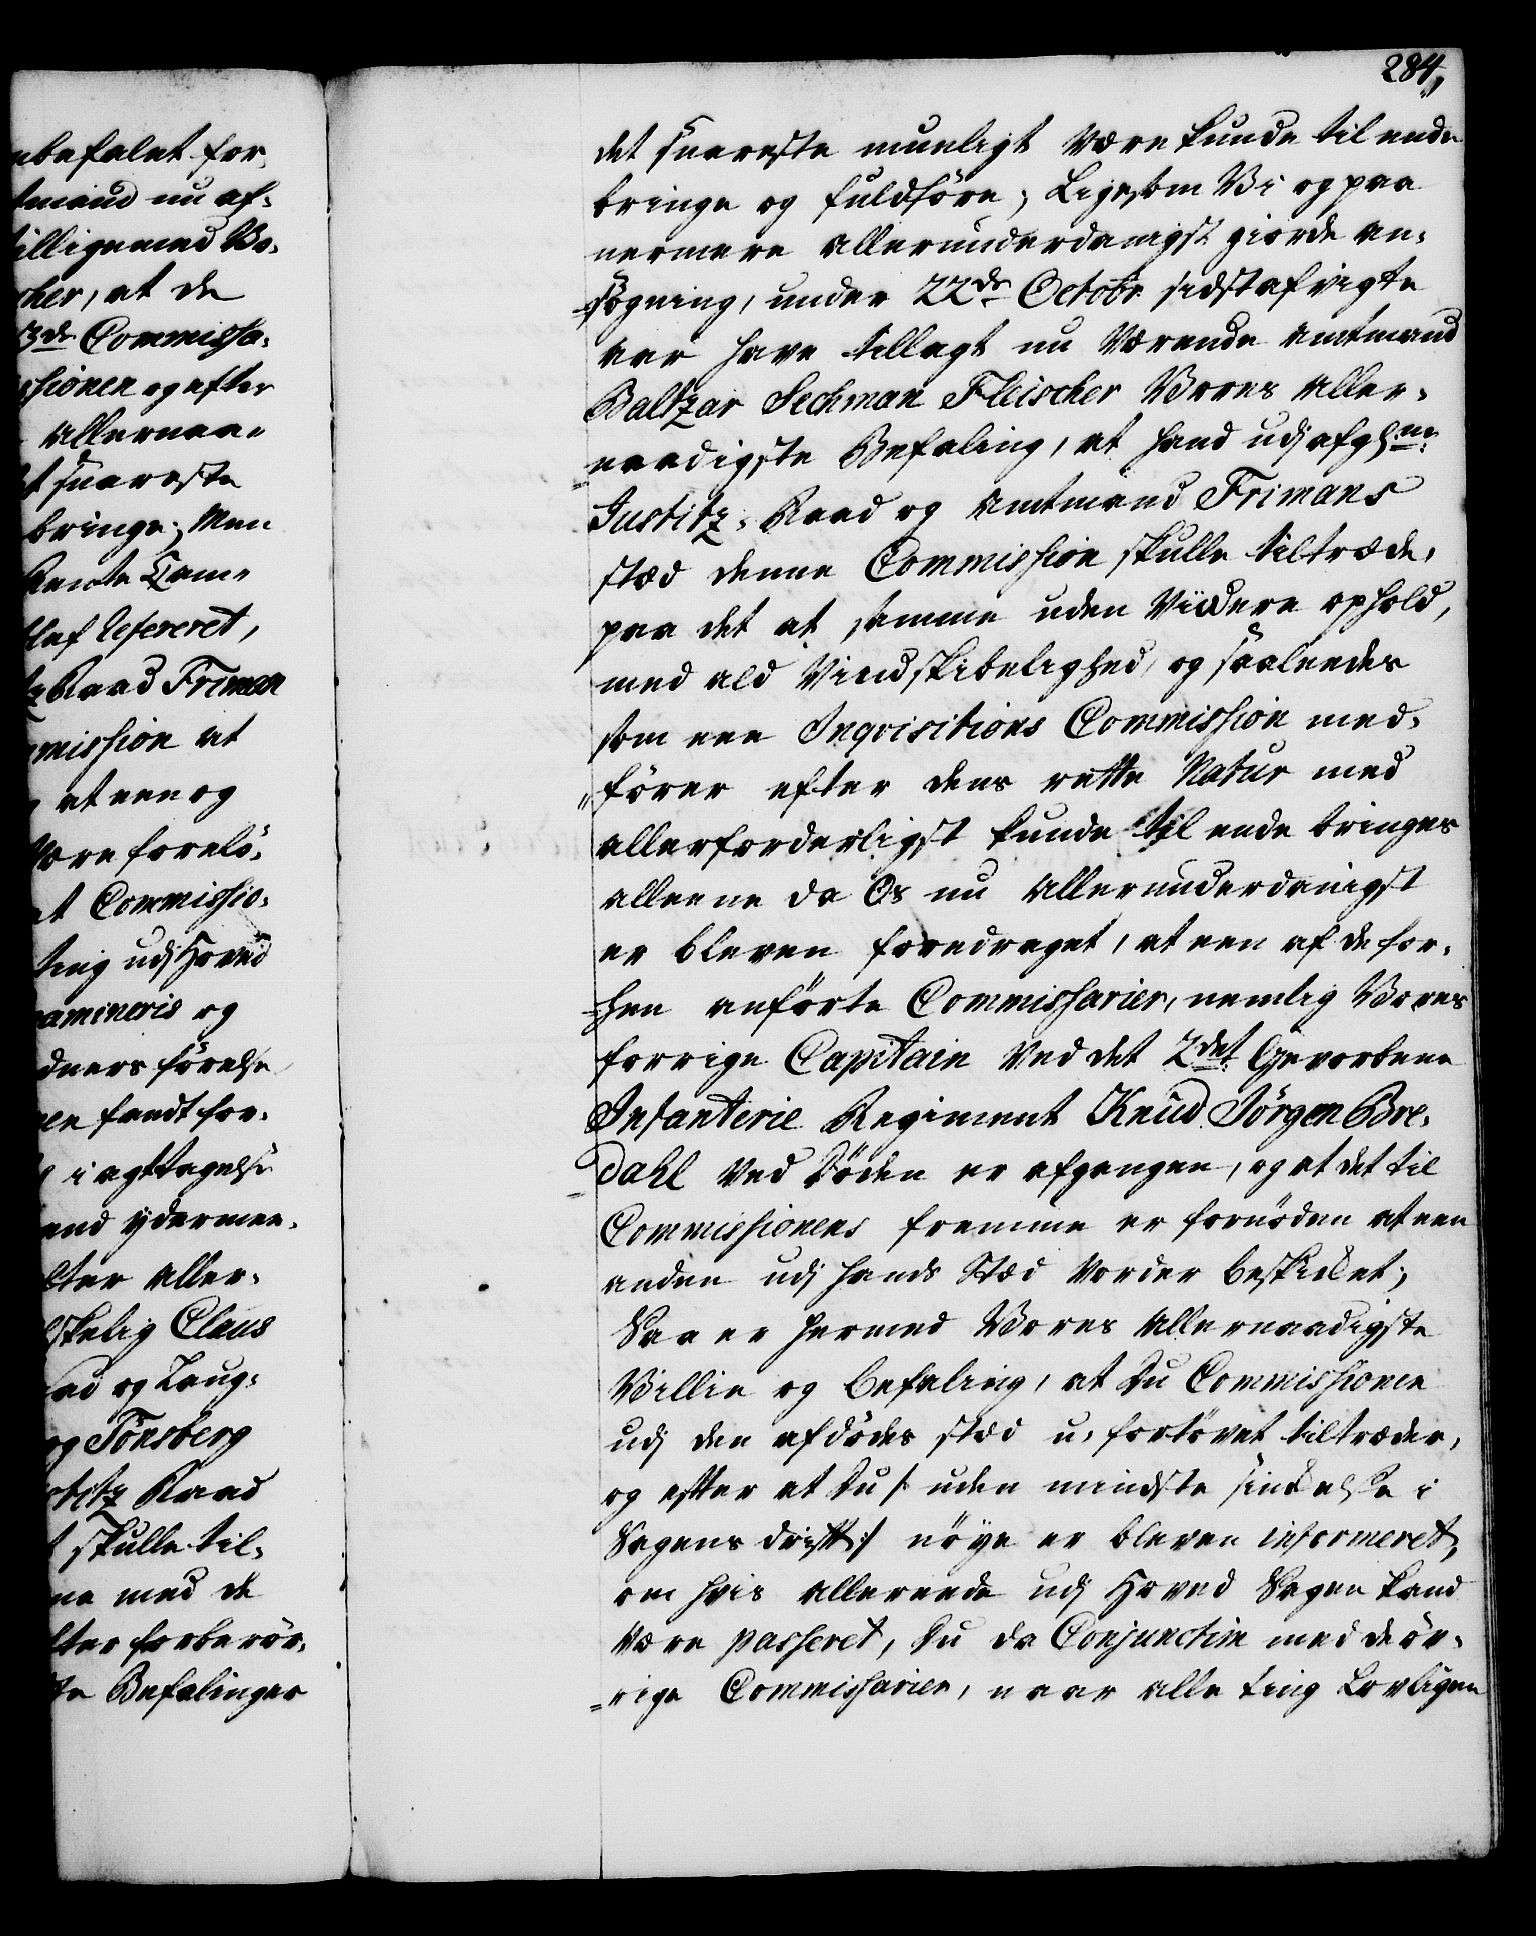 ebefalet for,
tmand nu af-
tilligemed Vo-
cher, at de
3de Commissa-
ssionen og efter
allernaa-
t snareste
bringe; Men
Rente Cam-
refereret,
Raad Friman
mission at
at een og
være forelö-
t Commissio-
ting udj Hoved
amineris og
dners förelse
en fandt for-
i agttagelse
end ÿdermee-
lter Aller-
skelig Claus
ad og Laug-
og Tönsberg
titz Raad
t skulle til-
ne med de
lter forberör-
te Befalinger
284,
det snareste mueligt være kunde til ende
bringe og fuldföre; Ligesom Vi og paa
nermere allerunderdanigst giorde an-
sögning, under 22de Octobr sidstafvigte
aar have tillagt nu Værende Amtmand
Baltzar Sechman Fleischer Vores Aller-
naadigste Befaling, at hand udj afg:ne
Justitz-Raad og Amtmand Frimans
stæd denne Commission skulle tiltræde,
paa det at samme uden Viidere ophold,
med ald Vindskibelighed, og saaleedes
som een Inqvisitions Commission med-
förer efter dens rette Natur med
allerforderligst kunde til ende bringes
alleene da Os nu Allerunderdanigst
er bleven foredraget, at een af de for-
hen anförte Commissarier, nemlig Vores
forrige Capitain Ved det 2det Gevorbene
Infanterie Regiment Knud Jörgen Bre-
dahl Ved Döden er afgangen, og at det til
Commissionens fremme er fornöden at een
anden udj hands Stæd vorder beskikket;
Saa er hermed Vores Allernaadigste
Villie og Befaling, at Du Commissionen
udj den afdödes stæd u-fortövet tiltræder,
og efter at Du /: uden mindste sinkelse i
Sagens drift :/ nöye er bleven informeret,
om hvis allereede udj Hoved Sagen kand
være passeret, Du da Conjunctim med de öv-
rige Commissarier, naar alle ting Lovligen